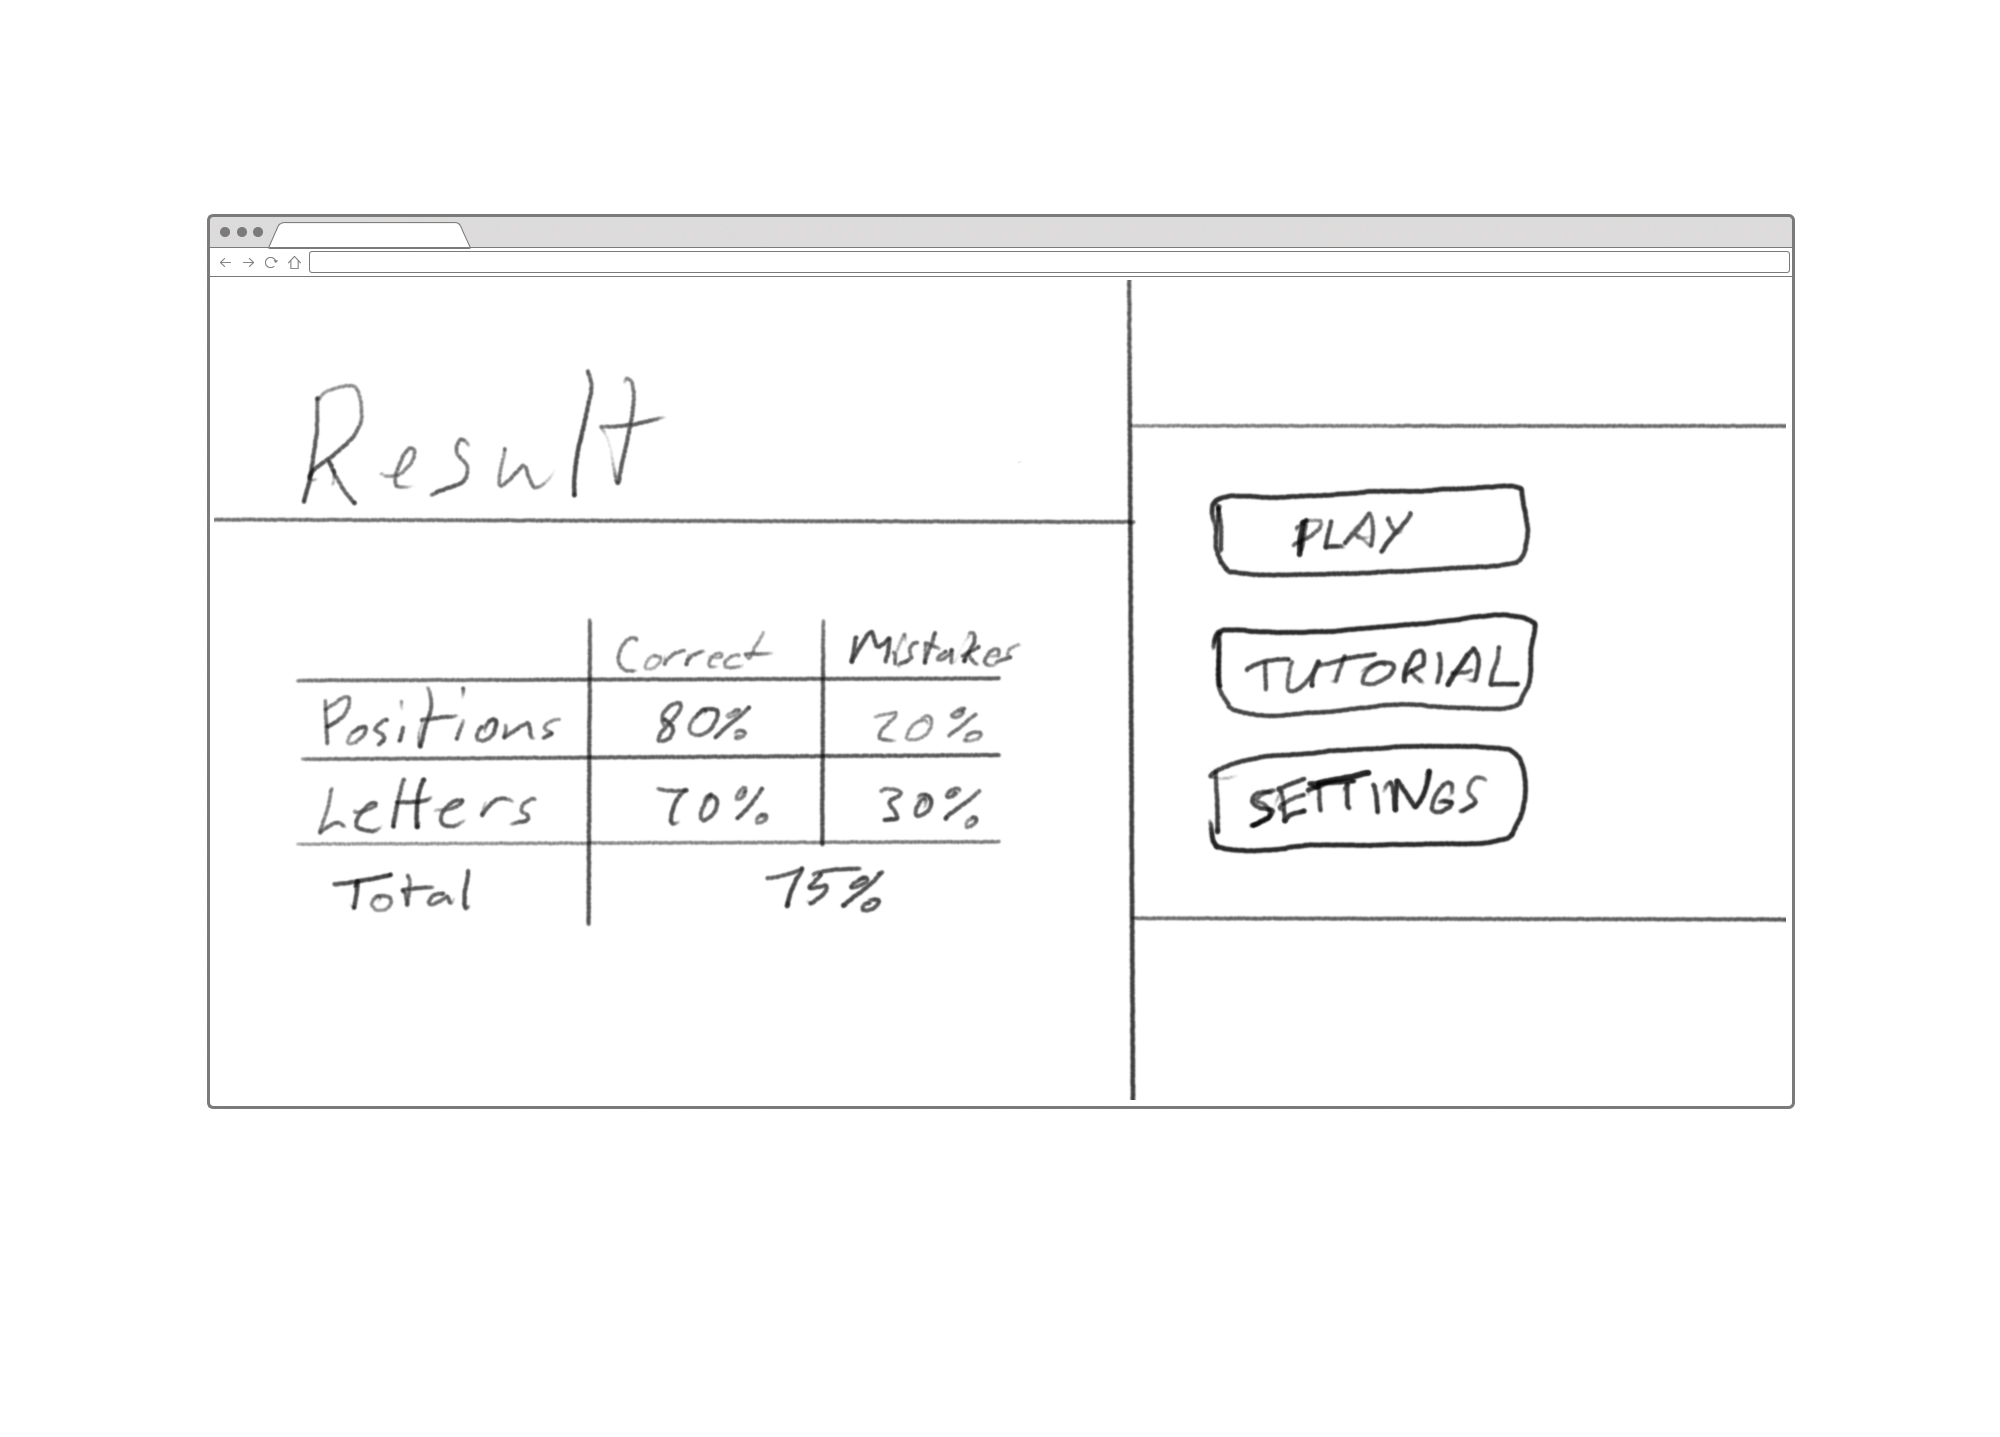 Result
Correct Mistakes
Positions 80% 20%
Letters 70% 30%
Total 75%
PLAY
TUTORIAL
SETTINGS